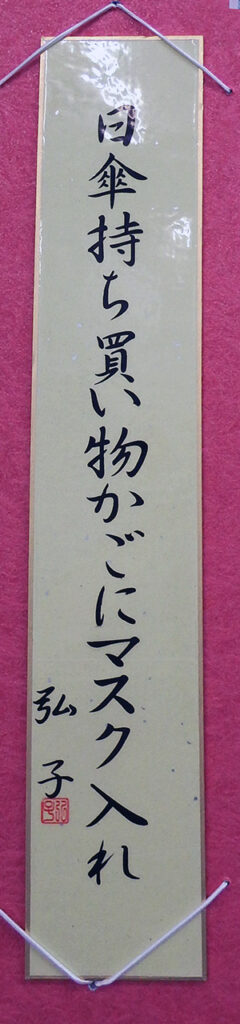 日傘持ち買い物かごにマスク入れ
弘子